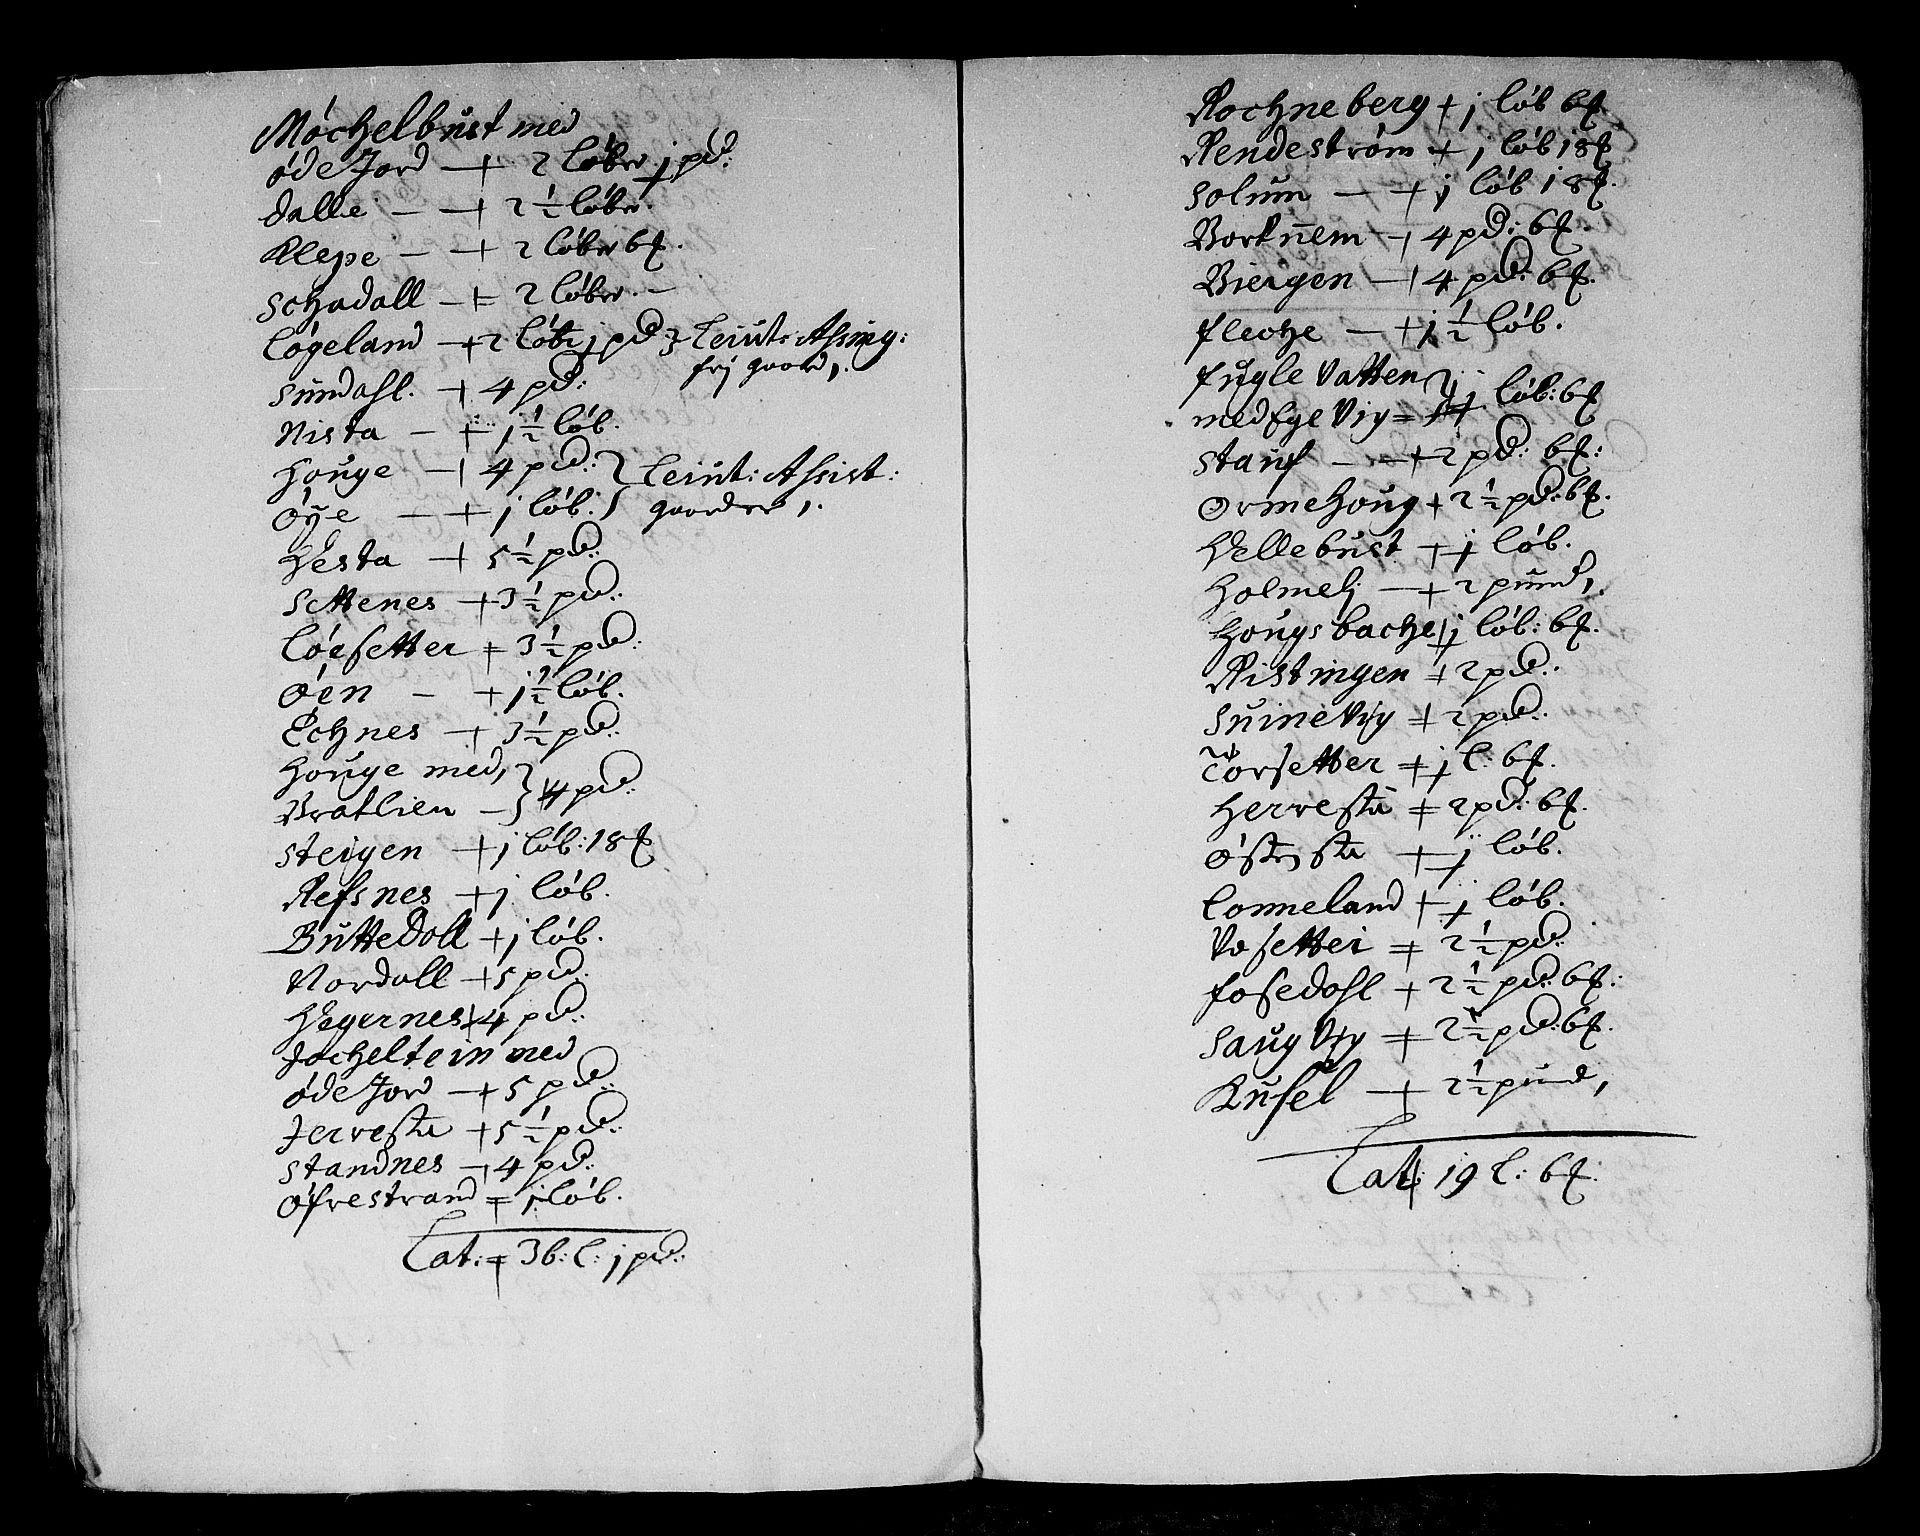 Møchelbust med
øde Jord — + 2 løber j pd:
dalle — + 2 ½ løber.
Kleppe — + 2 løber 6 ℔.
schadall — + 2 løber. —
Løgeland — + 2 løb: j pd } Leiut: Assing:
frj gaard,.
sundahl. — + 4 pd:
Nista — + j ½ løb.
Houge — + 4 pd: } Leiut: Assist:
Øye — + j løb: } gaarder,.
Hesta — + 5 ½ pd:
settenes + 3 ½ pd:
Løesetter + 3 ½ pd:
Øen — + j ½ løb.
Echnes — + 3 ½ pd:
Houge med, }
Bratlien — } 4 pd:
steigen + j løb: 18 ℔
Refsnes + j løb.
Buttedoll + j løb.
Nordall + 5 pd:
Hegernes + 4 pd:
Jocheltein med
øde Jord — + 5 pd:
Jerresta + 5 ½ pd:
standnes + 4 pd:
Øfrestrand = j løb.
Lat: = 36: L: j pd:
Rochneberg + j løb 6 ℔
Rendestrøm + j løb 18 ℔
solum — + j løb 18 ℔.
Borknem — + 4 pd: 6 ℔.
Biergen — + 4 pd: 6 ℔.
fleche — + j ½ løb.
fugle Vatten }
med Ege Vig = } j løb: 6 ℔
stauf — + 2 pd: 6 ℔:
Ormehoug + 2 ½ pd: 6 ℔.
Hellebust + j løb.
Holmelj — + 2 pund,.
Hougsbache + j løb: 6 ℔.
Ristingen + 2 pd:
suineVig + 2 pd:
Torsetter + j L: 6 ℔.
Herresta + 2 pd: 6 ℔.
Østensta + j løb.
Lonneland + j løb.
Vasetter = 2 ½ pd:
fosedahl + 2 ½ pd: 6 ℔:
saugVig + 2 ½ pd: 6 ℔.
Kusel — + 2 ½ pund,
Lat: 19 L: 6 ℔.